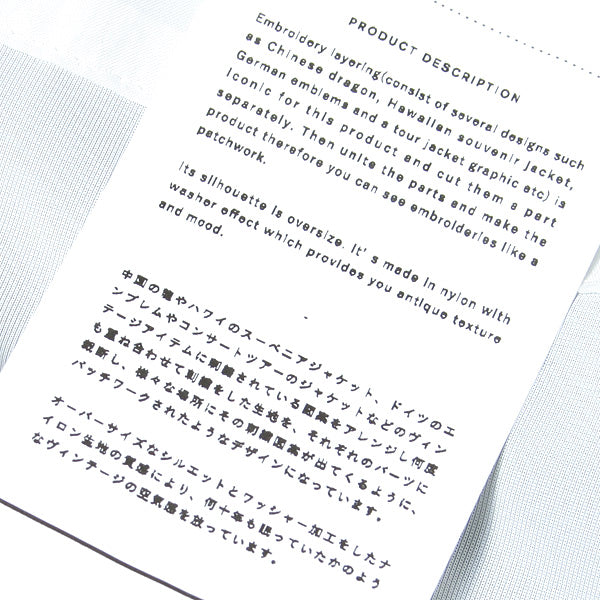 PRODUCT DESCRIPTION
Embroidery layering(consist of several designs such
as Chinese dragon, Hawaiian souvenir jacket,
German emblems and a tour jacket graphic etc) is
iconic for this product and cut them a part
separately. Then unite the parts and make the
product therefore you can see embroideries like a
patchwork.
Its silhouette is oversize. It's made in nylon with
washer effect which provides you antique texture
and mood.
中国の龍やハワイのスーベニアジャケット、ドイツのエ
ンブレムやコンサートツアーのジャケットなどのヴィン
テージアイテムに刺繍されている図案をアレンジし何度
も重ね合わせて刺繍をした生地を、それぞれのパーツに
裁断し、様々な場所にその刺繍図案が出てくるように、
パッチワークされたようなデザインになっています。
オーバーサイズなシルエットとワッシャー加工をしたナ
イロン生地の質感により、何十年も眠っていたかのよう
なヴィンテージの空気感を放っています。